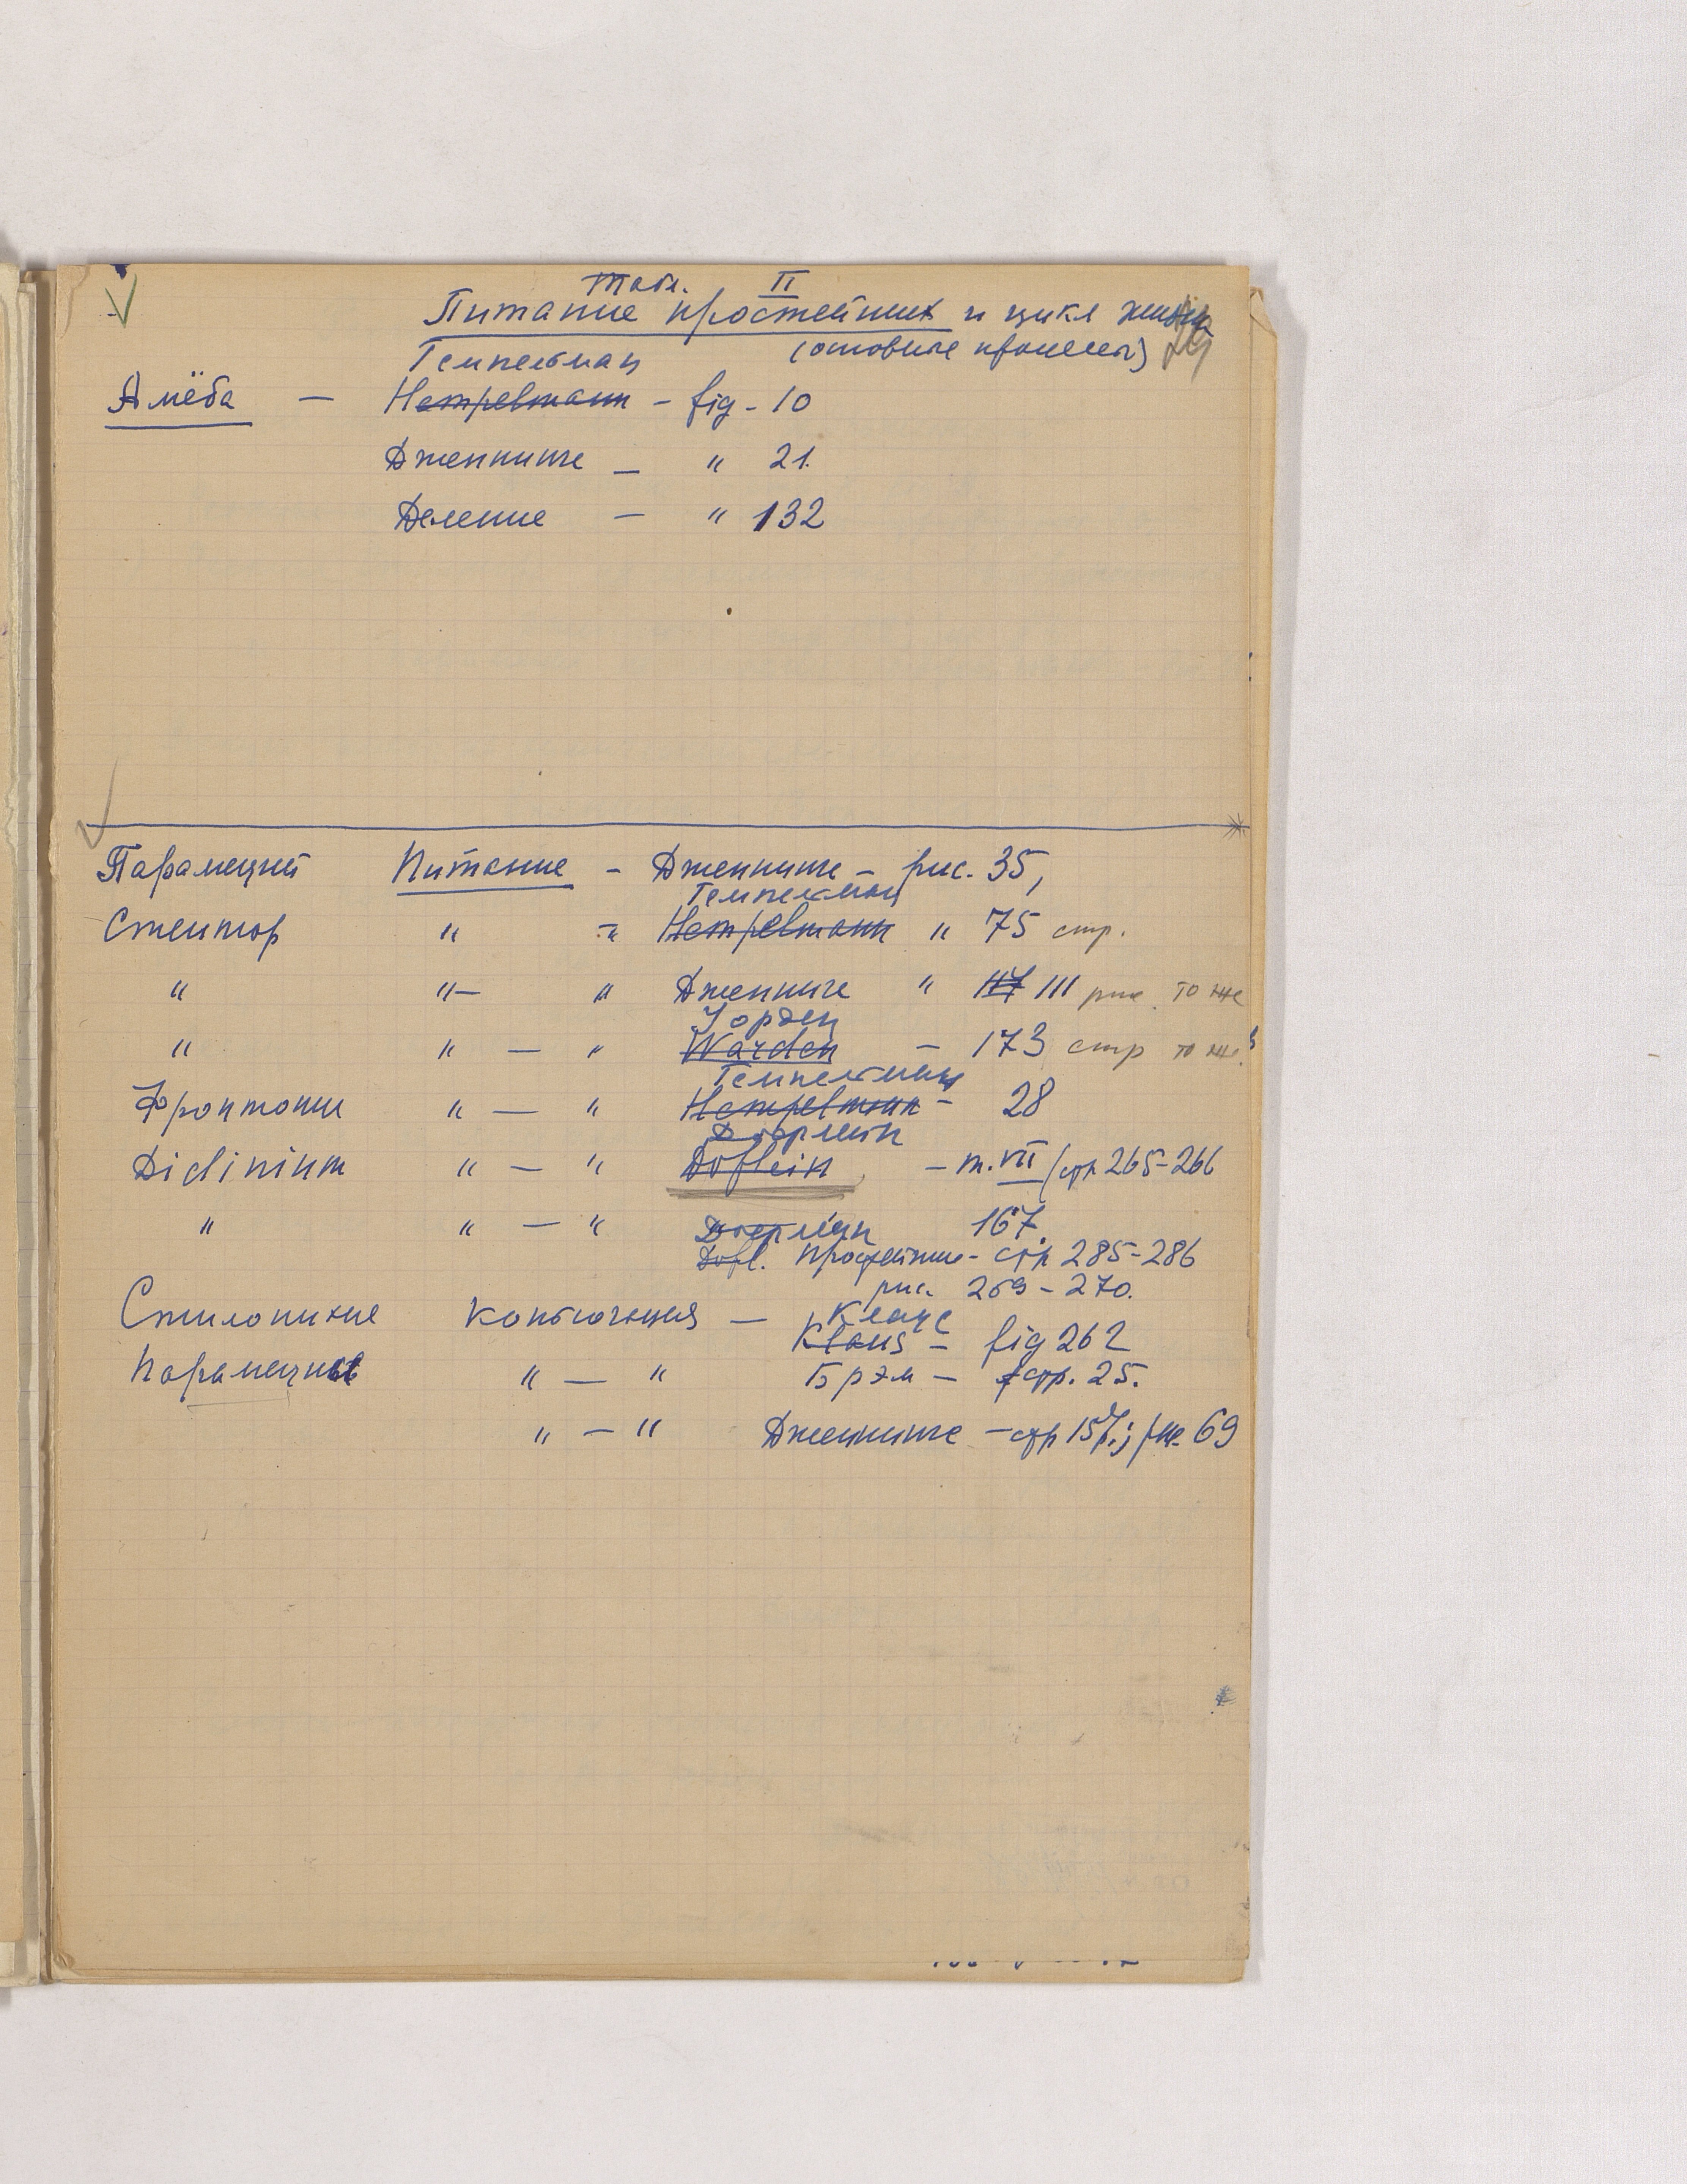 Табл. II
Питание простейших и цикл жизни
Гемпельман (основные процессы)
Амёба — Hempelmann - fig - 10
Дженнингс — " 21.
Деление — " 132
Парамеций Питание - Дженнингс - рис. 35,
Гемпельман
Стентор " - " Hempelmann " 75 стр.
" " — " Дженнингс " 117 111 рис то же
Уорден
" " — " Warden - 173 стр то же
Гемпельман
Фронтония " — " Hempelmann - 28
Дофлейн
Didinium " — " Doflein - т. VII стр 265-266
" " — " Дофлейн 167.
Dofl. Простейшие - стр 285-286
рис. 269 - 270.
Стилонихие Конъюгация — Клаус
Klaus - fig 262
Парамеции " — " Брэм - стр. 25.
" — " Дженнингс - стр 157; рис. 69